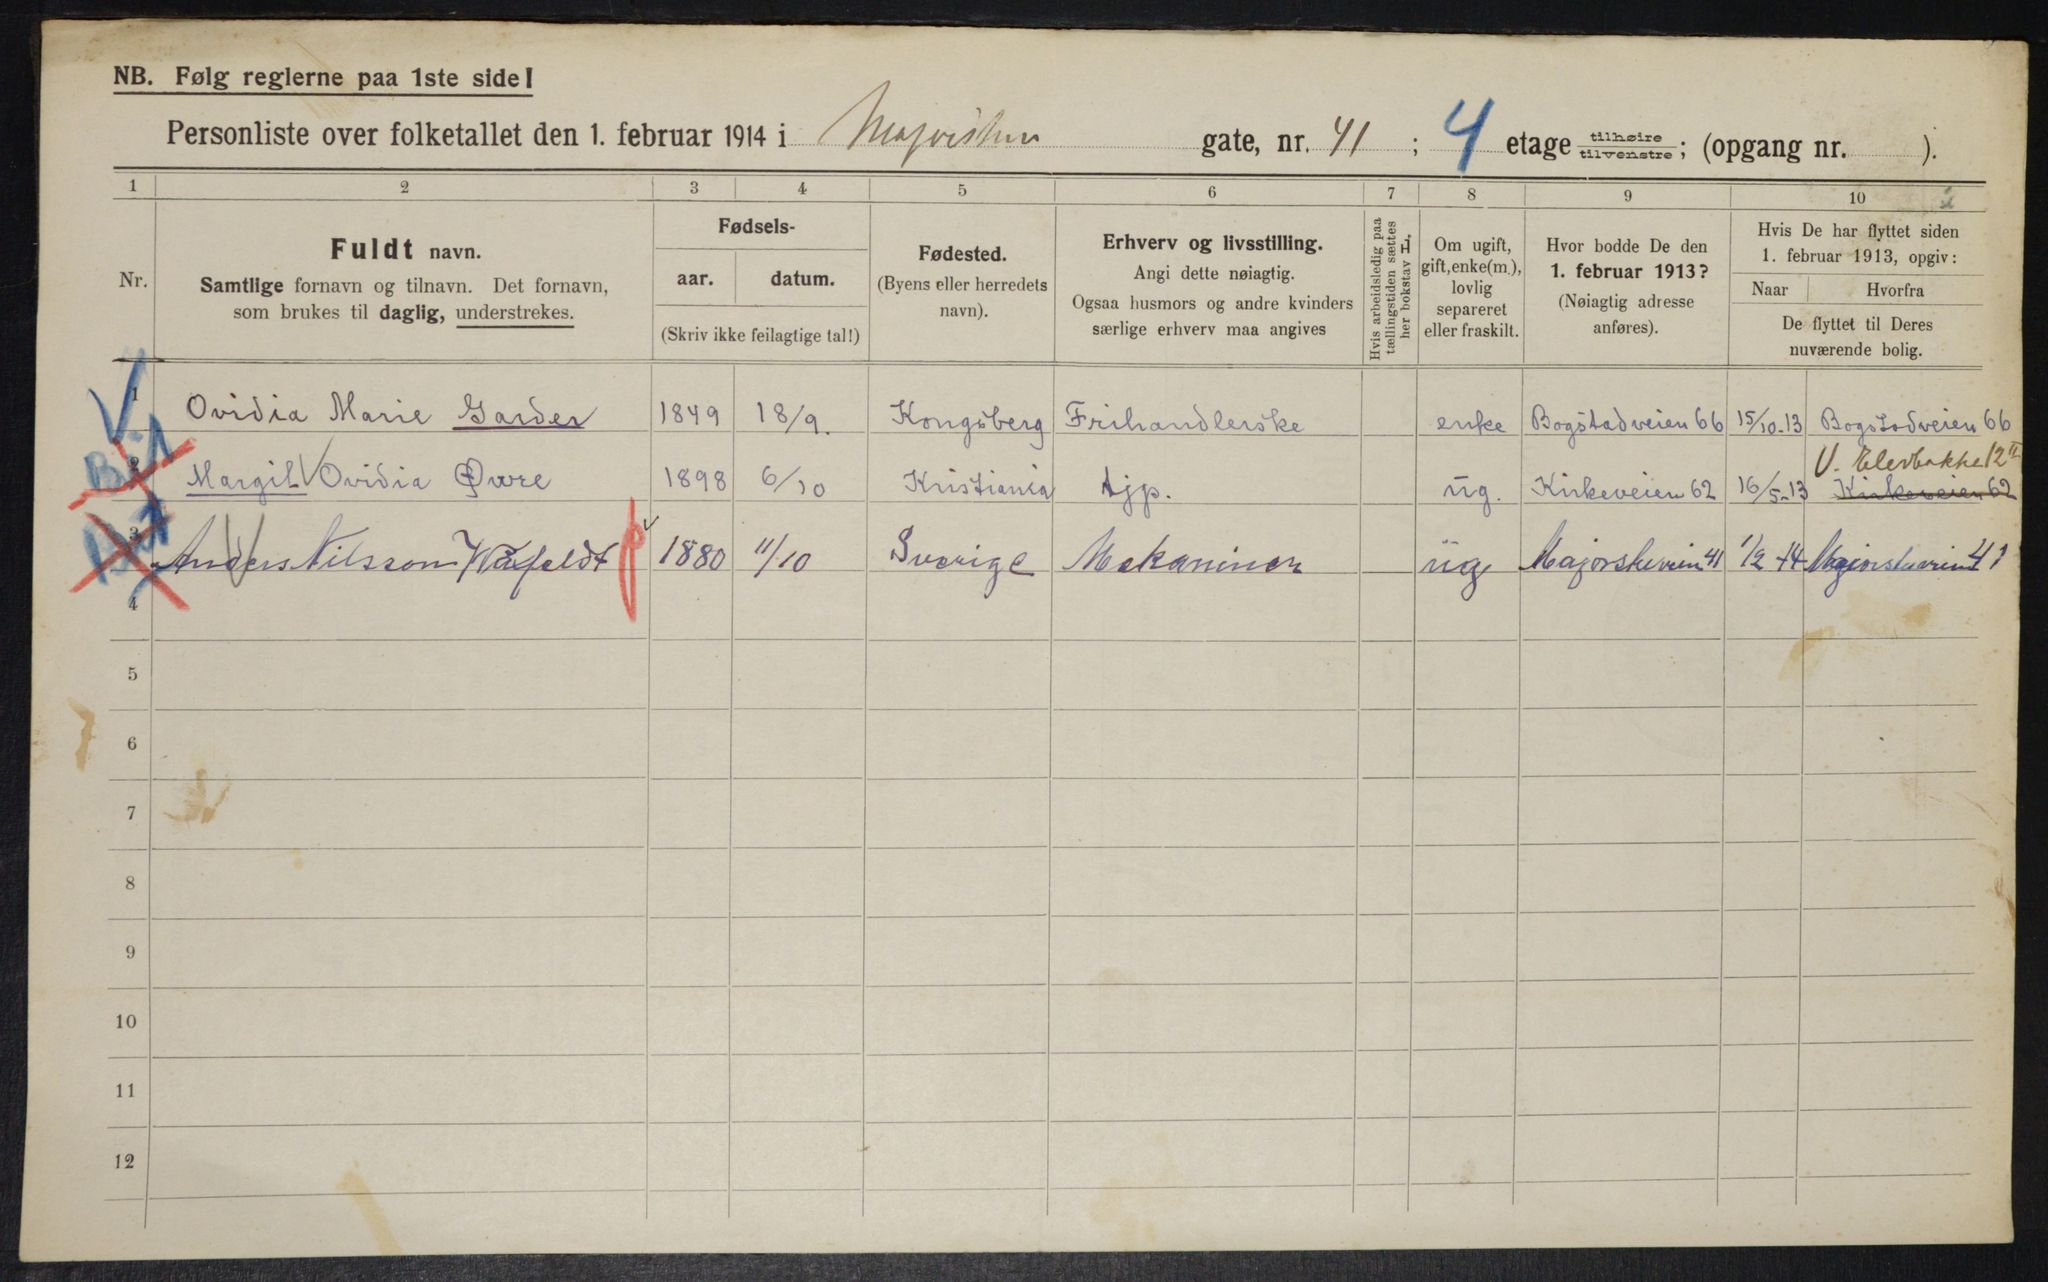 NB. Følg reglerne paa 1ste side!
Personliste over folketallet den 1. februar 1914 i gate, nr. 41 ; 4 etage tilhøire / tilvenstre ; (opgang nr. ).
1 2 3 4 5 6 7 8 9 10
Nr.
Fuldt navn.
Samtlige fornavn og tilnavn. Det fornavn,
som brukes til daglig, understrekes.
Fødsels-
aar. datum.
(Skriv ikke feilagtige tal!)
Fødested.
(Byens eller herredets
navn).
Erhverv og livsstilling.
Angi dette nøiagtig.
Ogsaa husmors og andre kvinders
særlige erhverv maa angives
Hvis arbeidsledig paa
tællingstiden sættes
her bokstav L.
Om ugift,
gift, enke(m.),
lovlig
separeret
eller fraskilt.
Hvor bodde De den
1. februar 1913?
(Nøiagtig adresse
anføres).
Hvis De har flyttet siden
1. februar 1913, opgiv:
Naar Hvorfra
De flyttet til Deres
nuværende bolig.
1 Ovidia Marie Garder 1849 18/9. Kongsberg Frihandlerske enke Bogstadveien 66 15/10-13 Bogstadveien 66
2 Margit Ovidia Øvre 1898 6/10 Kristiania tjp. ug. Kirkeveien 62 16/5-13 Kirkeveien 62
3 Anders Nilsson 1880 11/10 Sverige ug Majorstuveien 41 1/2-14 Majorstuveien 41
4
5
6
7
8
9
10
11
12